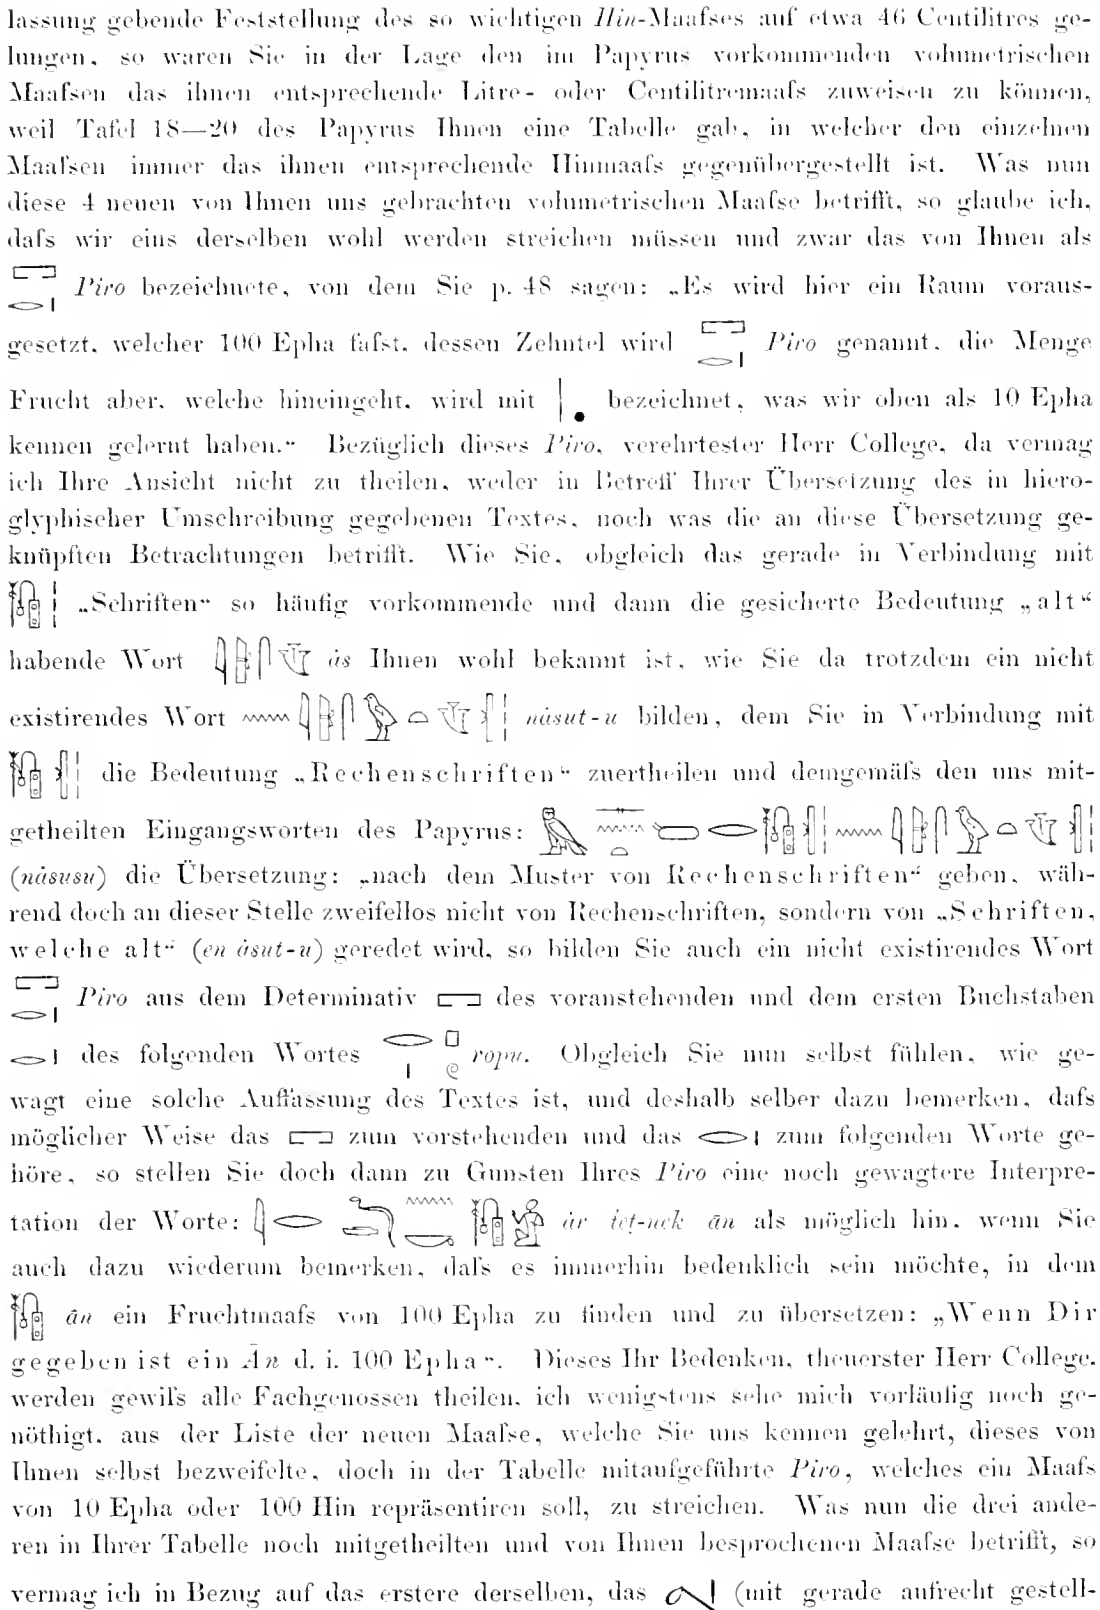 lassung gebende Feststellung des so wichtigen Hin-Maafses auf etwa 46 Centilitres ge-
lungen, so waren Sie in der Lage den im Papyrus vorkommenden volumetrischen
Maafsen das ihnen entsprechende Litre- oder Centilitremaafs zuweisen zu können,
weil Tafel 18—20 des Papyrus Ihnen eine Tabelle gab, in welcher den einzelnen
Maafsen immer das ihnen entsprechende Hinmaafs gegenübergestellt ist. Was nun
diese 4 neuen von Ihnen uns gebrachten volumetrischen Maafse betrifft, so glaube ich,
dafs wir eins derselben wohl werden streichen müssen und zwar das von Ihnen als
𓉐𓂋𓏤 Piro bezeichnete, von dem Sie p. 48 sagen: „Es wird hier ein Raum voraus-
gesetzt, welcher 100 Epha fafst, dessen Zehntel wird 𓉐𓂋𓏤 Piro genannt, die Menge
Frucht aber, welche hineingeht, wird mit |. bezeichnet, was wir oben als 10 Epha
kennen gelernt haben.“ Bezüglich dieses Piro, verehrtester Herr College, da vermag
ich Ihre Ansicht nicht zu theilen, weder in Betreff Ihrer Übersetzung des in hiero-
glyphischer Umschreibung gegebenen Textes, noch was die an diese Übersetzung ge-
knüpften Betrachtungen betrifft. Wie Sie, obgleich das gerade in Verbindung mit
𓏟𓏥 „Schriften“ so häufig vorkommende und dann die gesicherte Bedeutung „alt“
habende Wort ås Ihnen wohl bekannt ist, wie Sie da trotzdem ein nicht
existirendes Wort nåsut-u bilden, dem Sie in Verbindung mit
𓏟𓏛𓏥 die Bedeutung „Rechenschriften“ zuertheilen und demgemäfs den uns mit-
getheilten Eingangsworten des Papyrus:
(nåsusu) die Übersetzung: „nach dem Muster von Rechenschriften“ geben, wäh-
rend doch an dieser Stelle zweifellos nicht von Rechenschriften, sondern von „Schriften,
welche alt“ (en åsut-u) geredet wird, so bilden Sie auch ein nicht existirendes Wort
𓉐𓂋𓏤 Piro aus dem Determinativ 𓉐 des voranstehenden und dem ersten Buchstaben
𓂋𓏤 des folgenden Wortes 𓂋𓏤𓊪𓏲 ropu. Obgleich Sie nun selbst fühlen, wie ge-
wagt eine solche Auffassung des Textes ist, und deshalb selber dazu bemerken, dafs
möglicher Weise das 𓉐 zum vorstehenden und das 𓂋𓏤 zum folgenden Worte ge-
höre, so stellen Sie doch dann zu Gunsten Ihres Piro eine noch gewagtere Interpre-
tation der Worte: 𓇋𓂋𓆓𓈖𓎡𓏟𓀀 år ṭeṭ-nek ān als möglich hin, wenn Sie
auch dazu wiederum bemerken, dafs es immerhin bedenklich sein möchte, in dem
𓏟 ān ein Fruchtmaafs von 100 Epha zu finden und zu übersetzen: „Wenn Dir
gegeben ist ein Ān d. i. 100 Epha“. Dieses Ihr Bedenken, theuerster Herr College,
werden gewifs alle Fachgenossen theilen, ich wenigstens sehe mich vorläufig noch ge-
nöthigt, aus der Liste der neuen Maafse, welche Sie uns kennen gelehrt, dieses von
Ihnen selbst bezweifelte, doch in der Tabelle mitaufgeführte Piro, welches ein Maafs
von 10 Epha oder 100 Hin repräsentiren soll, zu streichen. Was nun die drei ande-
ren in Ihrer Tabelle noch mitgetheilten und von Ihnen besprochenen Maafse betrifft, so
vermag ich in Bezug auf das erstere derselben, das (mit gerade aufrecht gestell-